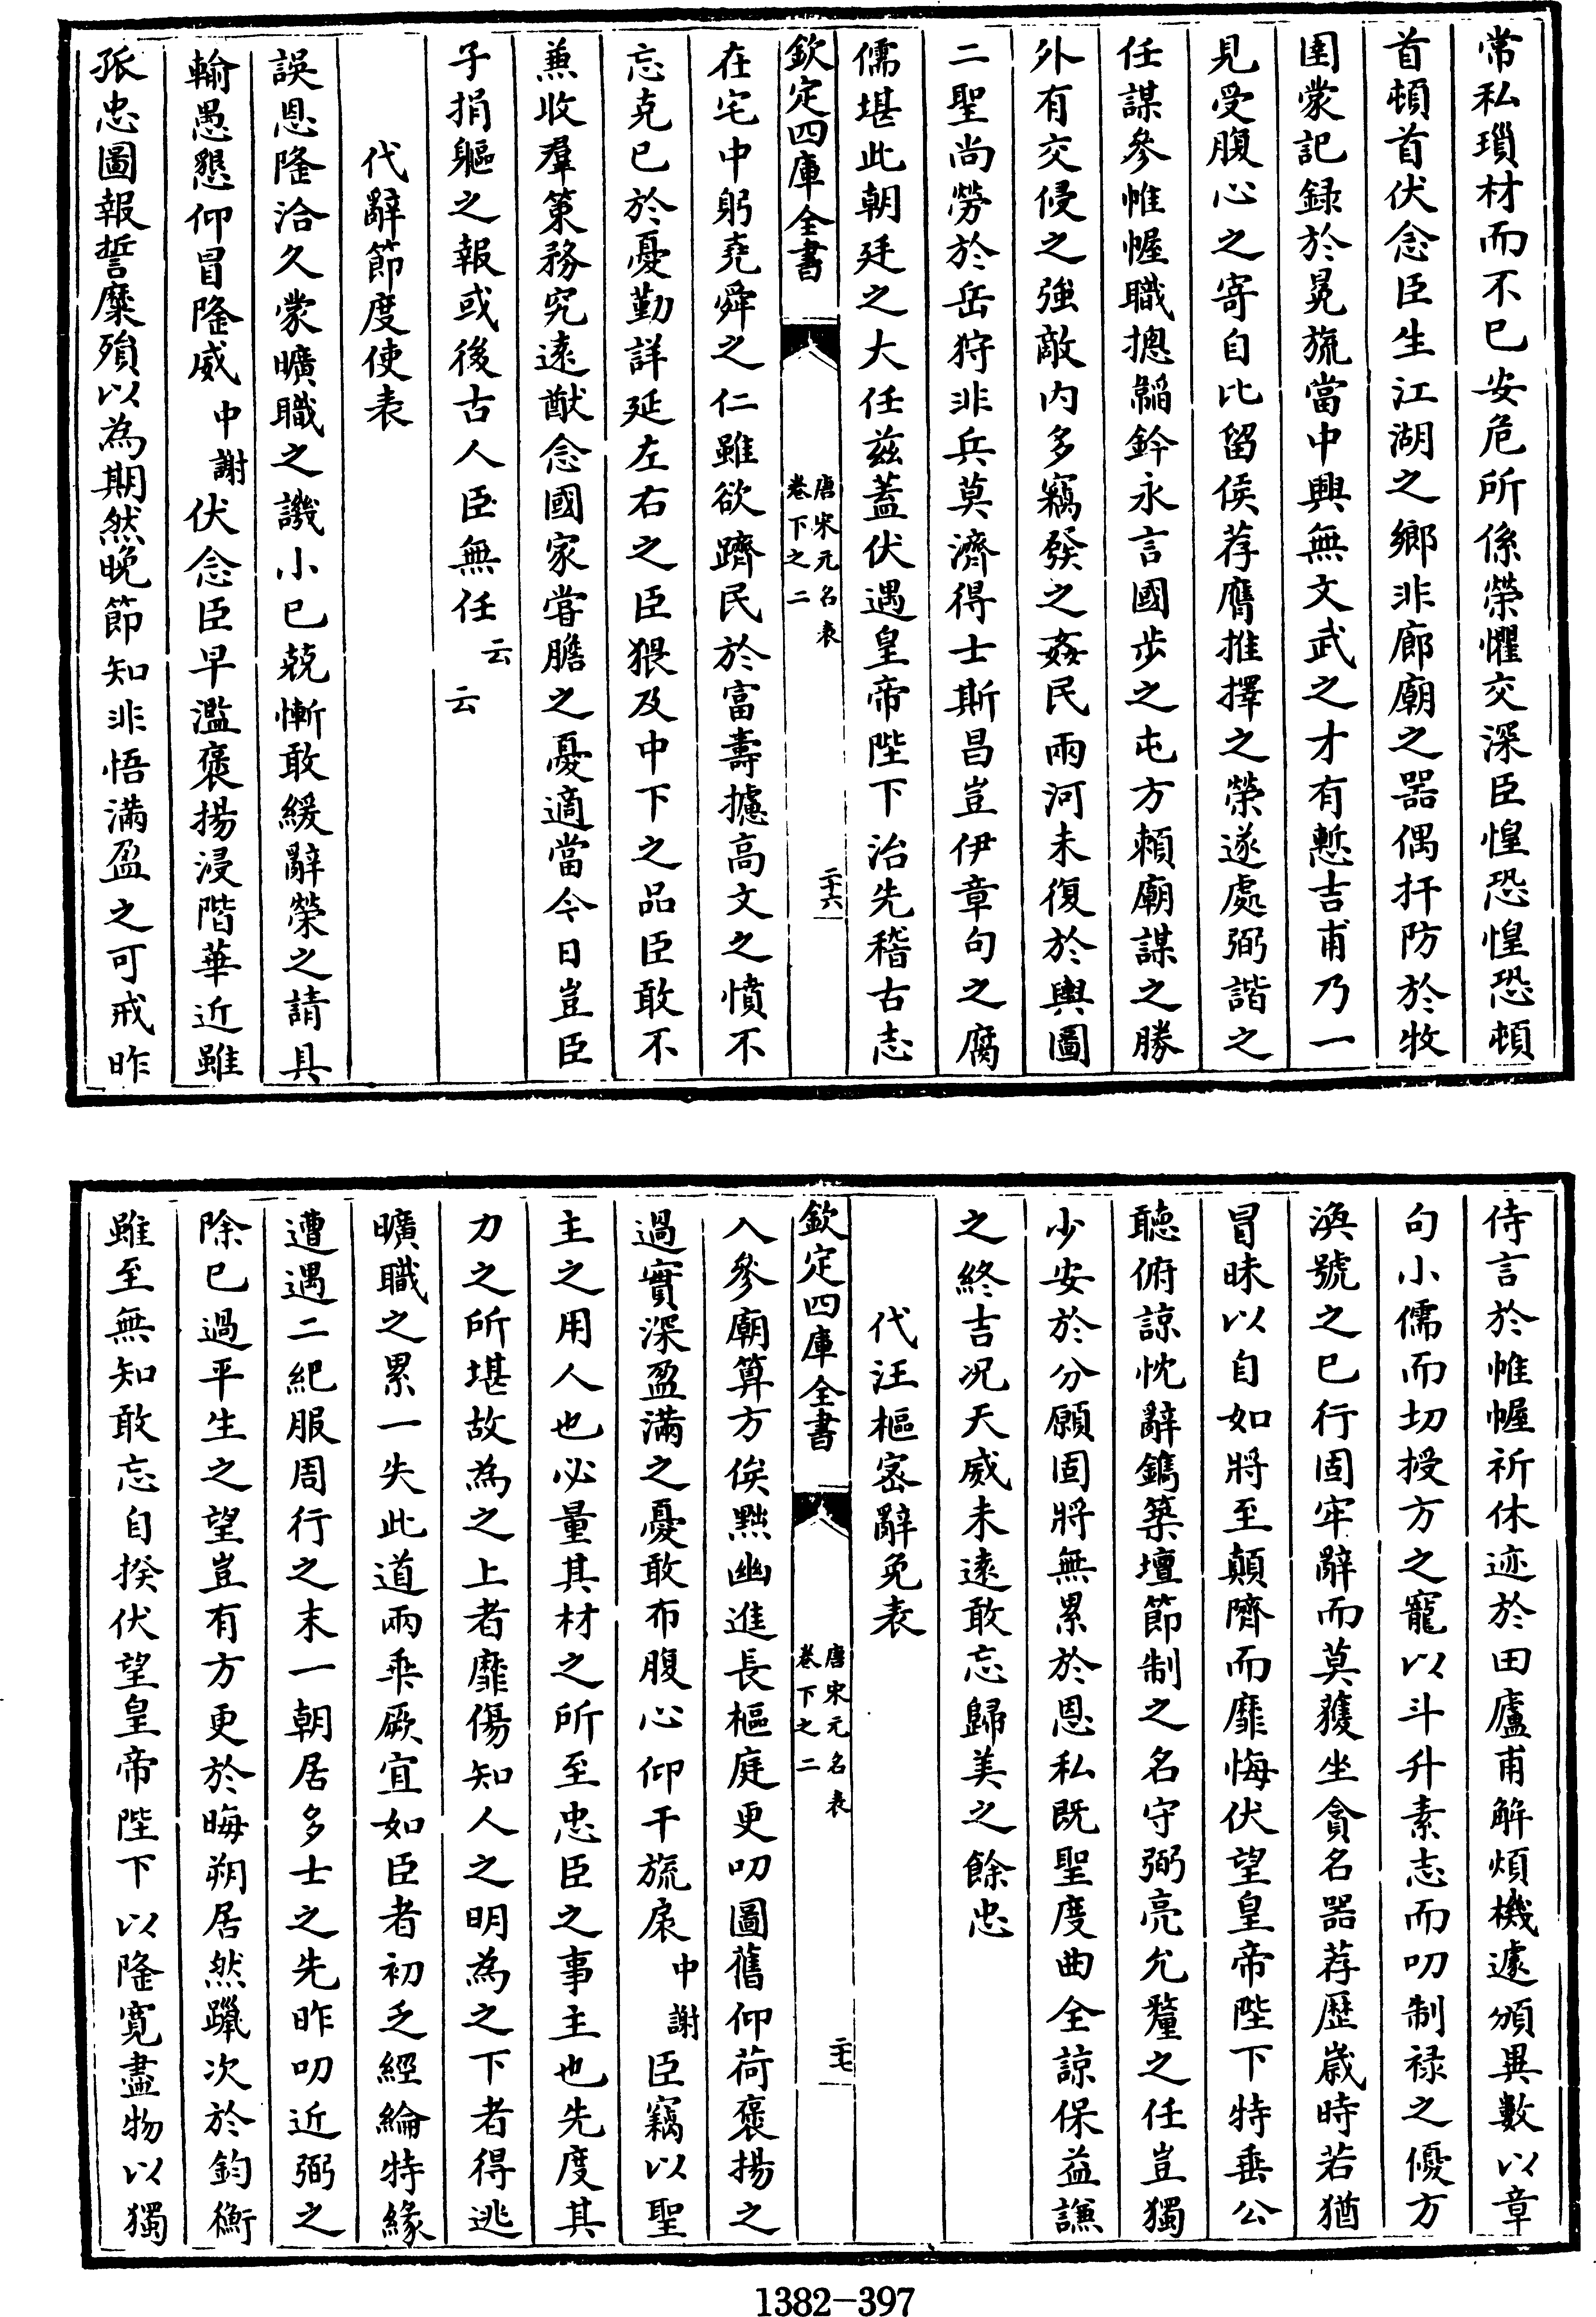 常私瑣材而不已安危所係榮懼交深臣惶恐惶恐頓
首頓首伏念臣生江湖之鄉非廊廟之器偶扞防於牧
圉蒙記録於冕旒當中興無文武之才有慙吉甫乃一
見受腹心之寄自比留侯荐膺推擇之榮遂處弼諧之
任謀參帷幄職摠韜鈐永言國步之屯方頼廟謀之勝
外有交侵之強敵内多竊發之姦民兩河未復於輿圖
二聖尚勞於岳狩非兵莫濟得士斯昌豈伊章句之腐
儒堪此朝廷之大任兹蓋伏遇皇帝陛下治先稽古志
欽定四庫全書
唐宋元名表
卷下之二
二十六
在宅中躬堯舜之仁雖欲躋民於富壽攄高文之憤不
忘克已於憂勤詳延左右之臣猥及中下之品臣敢不
兼收羣策務究遠猷念國家嘗膽之憂適當今日豈臣
子捐軀之報或後古人臣無任云云
代辭節度使表
誤恩隆洽久蒙曠職之譏小已兢慚敢緩辭榮之請具
輸愚懇仰冒隆威中謝伏念臣早濫褒揚浸階華近雖
孤忠圖報誓糜殞以為期然晚節知非悟滿盈之可戒昨
侍言於帷幄祈休迹於田廬甫解煩機遽頒異數以章
句小儒而切授方之寵以斗升素志而叨制禄之優方
渙號之已行固牢辭而莫獲坐貪名器荐歴歲時若猶
冒昧以自如將至顛隮而靡悔伏望皇帝陛下特垂公
聽俯諒忱辭鐫築壇節制之名守弼亮允釐之任豈獨
少安於分願固將無累於恩私既聖度曲全諒保益謙
之終吉况天威未遠敢忘歸美之餘忠
代汪樞密辭免表
欽定四庫全書
唐宋元名表
卷下之二
二十七
入參廟算方俟黜幽進長樞庭更叨圖舊仰荷褒揚之
過實深盈滿之憂敢布腹心仰干旒扆中謝臣竊以聖
主之用人也必量其材之所至忠臣之事主也先度其
力之所堪故為之上者靡傷知人之明為之下者得逃
曠職之累一失此道兩乖厥宜如臣者初乏經綸特緣
遭遇二紀服周行之末一朝居多士之先昨叨近弼之
除已過平生之望豈有方更於晦朔居然躐次於鈞衡
雖至無知敢忘自揆伏望皇帝陛下以隆寛盡物以獨
1382-397